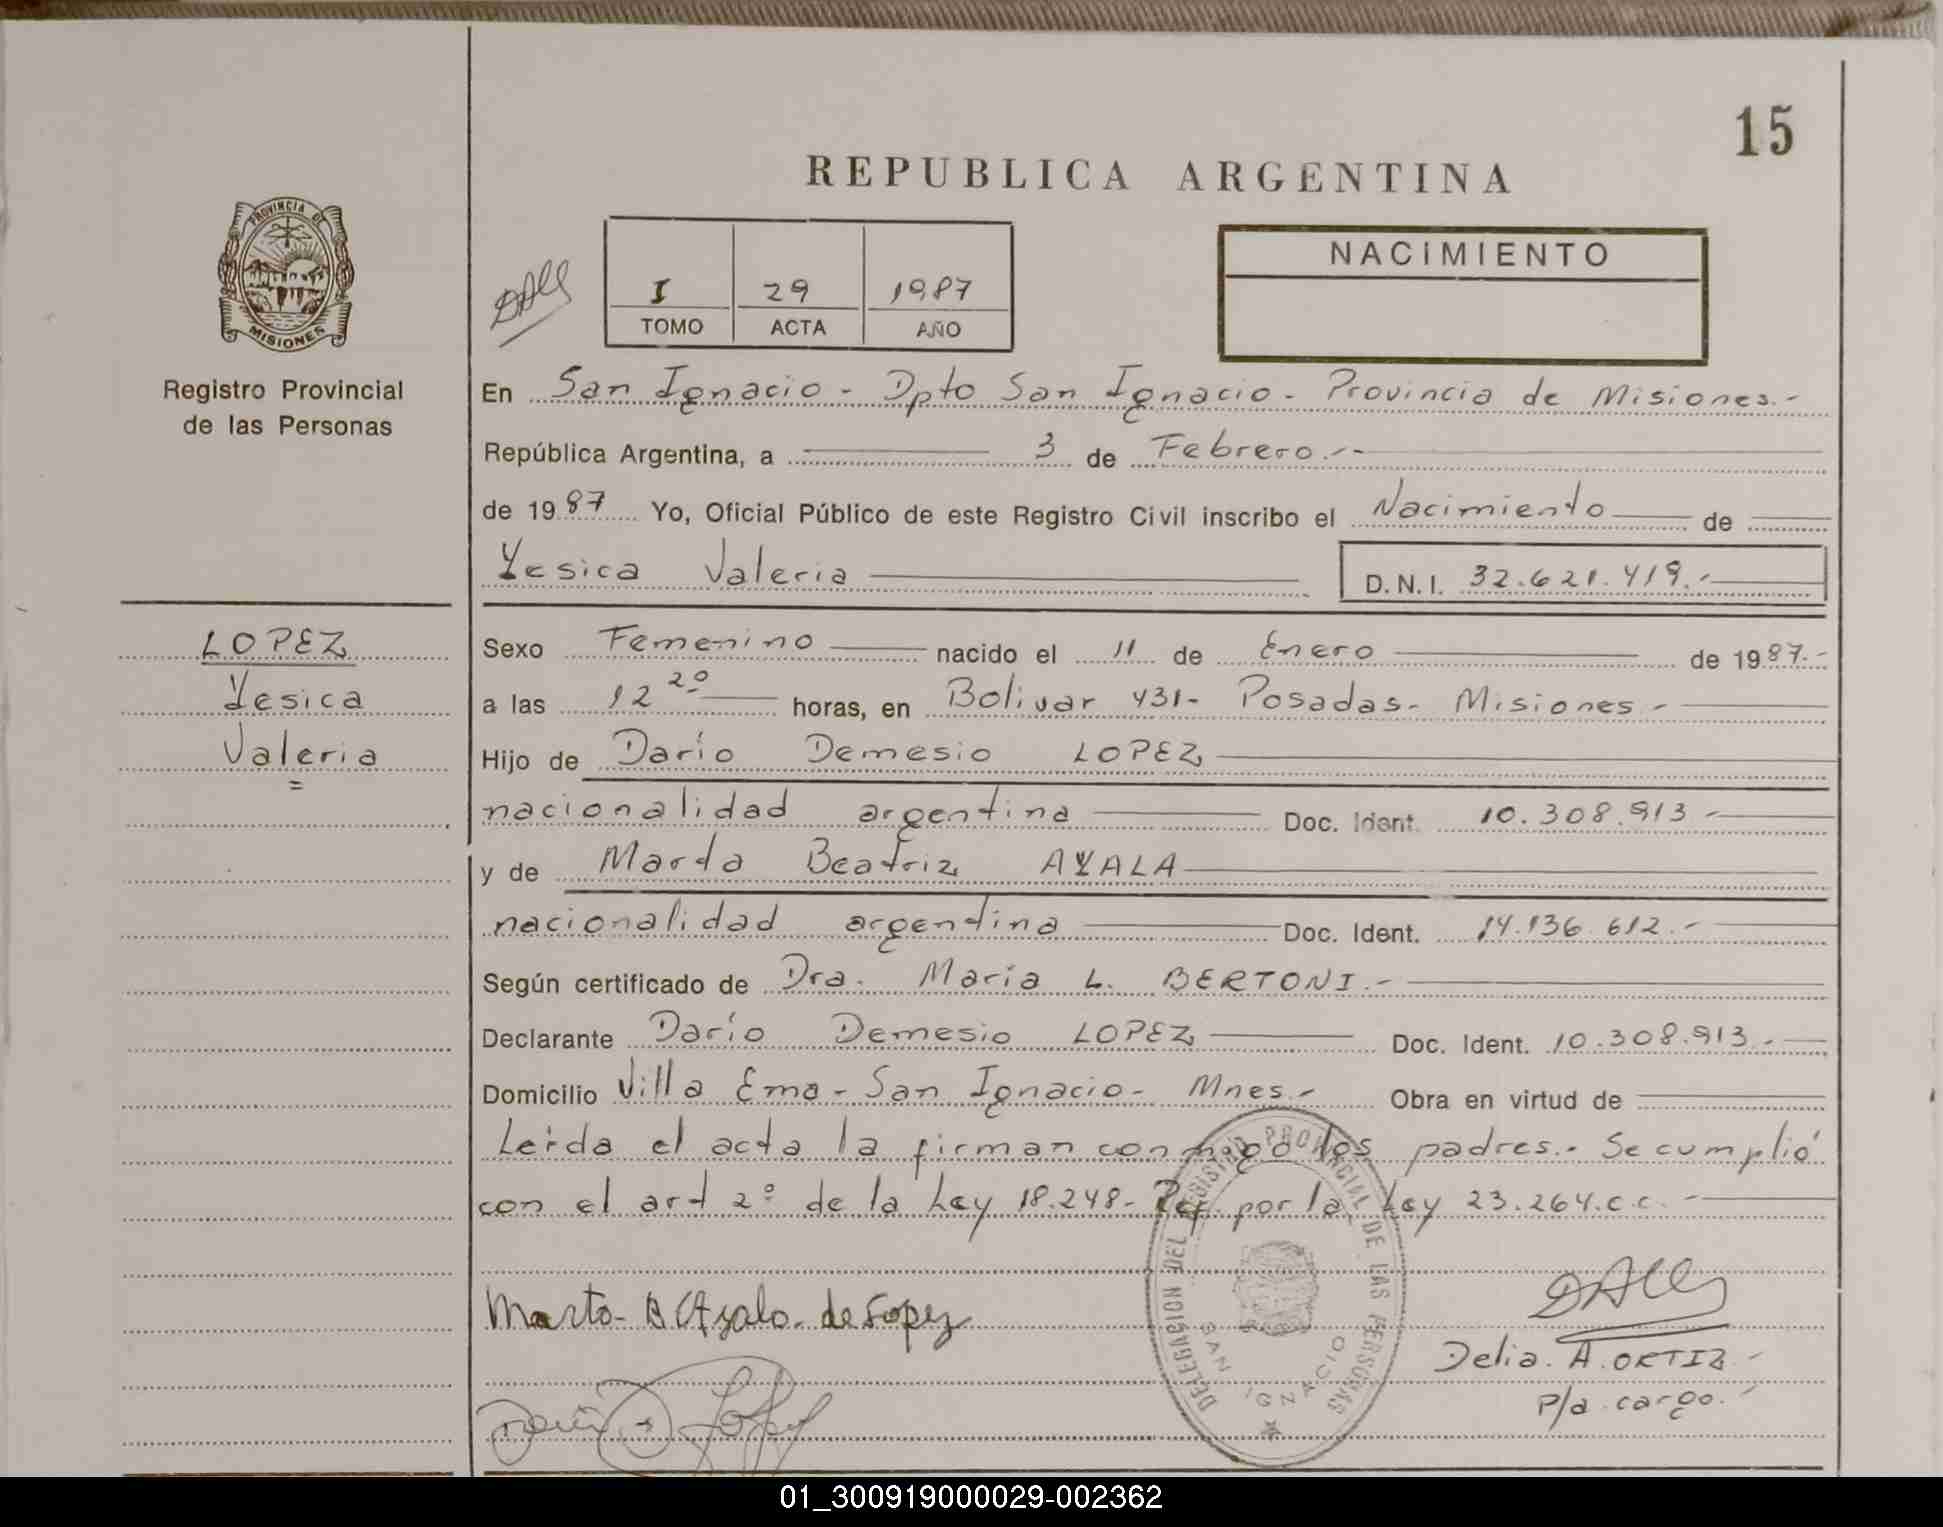 15
REPUBLICA ARGENTINA
PROVINCIA DE
MISIONES
Registro Provincial
de las Personas
I 29 1987
TOMO ACTA AÑO
NACIMIENTO
En San Ignacio - Dpto San Ignacio - Provincia de Misiones.-
República Argentina, a 3 de Febrero.--
de 1987 Yo, Oficial Público de este Registro Civil inscribo el Nacimiento de
Yesica Valeria D.N.I. 32.621.419.-
LOPEZ
Yesica
Valeria
Sexo Femenino nacido el 11 de Enero de 1987.-
a las 12 20 horas, en Bolivar 431- Posadas- Misiones.-
Hijo de Darío Demesio LOPEZ
nacionalidad argentina Doc. Ident. 10.308.913
y de Marta Beatriz AYALA
nacionalidad argentina Doc. Ident. 14.136.612.-
Según certificado de Dra. María L. BERTONI.-
Declarante Darío Demesio LOPEZ Doc. Ident. 10.308.913.-
Domicilio Villa Ema - San Ignacio - Mnes.- Obra en virtud de
Leída el acta la firman conmigo los padres.- Se cumplió
con el art 2º de la Ley 18.248- por la Ley 23.264.c.c.-
DELEGACION DEL REGISTRO PROVINCIAL DE LAS PERSONAS
SAN IGNACIO
Marta B Ayala de Lopez
Delia. A. ORTIZ
P/a cargo.
01_300919000029-002362